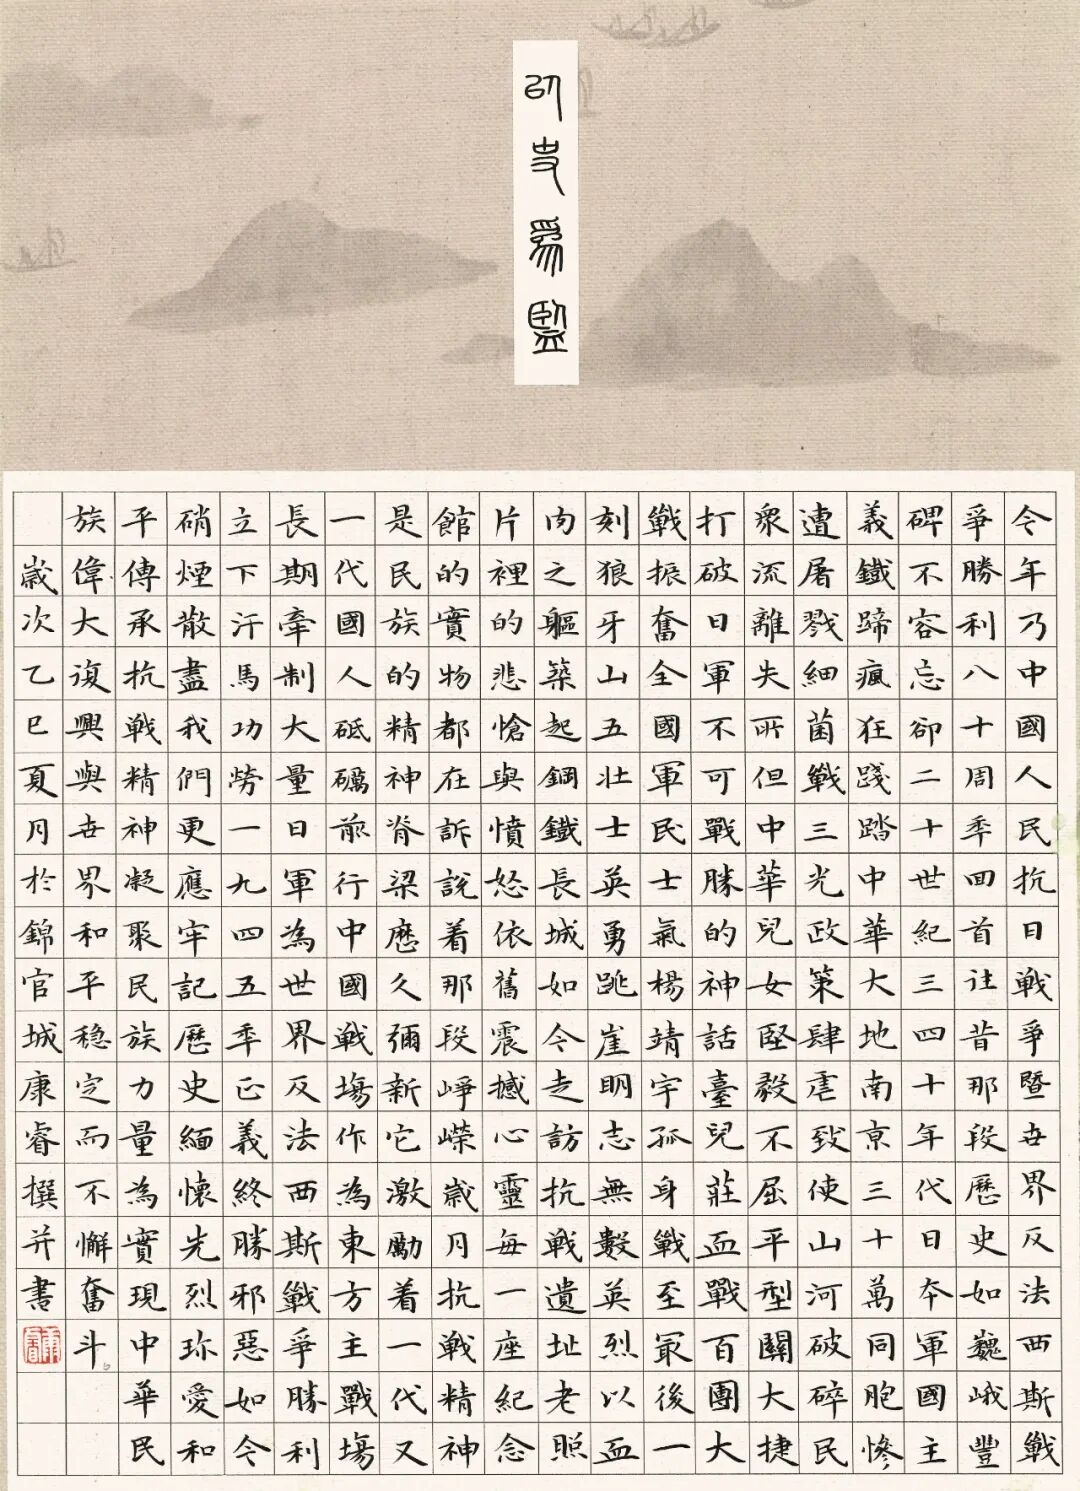 以史為監
今年乃中國人民抗日戰爭暨世界反法西斯戰
爭勝利八十周年回首往昔那段歷史如巍峨豐
碑不容忘卻二十世紀三四十年代日本軍國主
義鐵蹄瘋狂踐踏中華大地南京三十萬同胞慘
遭屠戮細菌戰三光政策肆虐致使山河破碎民
眾流離失所但中華兒女堅毅不屈平型關大捷
打破日軍不可戰勝的神話臺兒莊血戰百團大
戰振奮全國軍民士氣楊靖宇孤身戰至最後一
刻狼牙山五壯士英勇跳崖明志無數英烈以血
肉之軀築起鋼鐵長城如今走訪抗戰遺址老照
片裡的悲愴與憤怒依舊震撼心靈每一座紀念
館的實物都在訴說着那段崢嶸歲月抗戰精神
是民族的精神脊梁歷久彌新它激勵着一代又
一代國人砥礪前行中國戰場作為東方主戰場
長期牽制大量日軍為世界反法西斯戰爭勝利
立下汗馬功勞一九四五年正義終勝邪惡如今
硝煙散盡我們更應牢記歷史緬懷先烈珍愛和
平傳承抗戰精神凝聚民族力量為實現中華民
族偉大復興與世界和平穩定而不懈奮斗。
歲次乙巳夏月於錦官城康睿撰并書
康睿